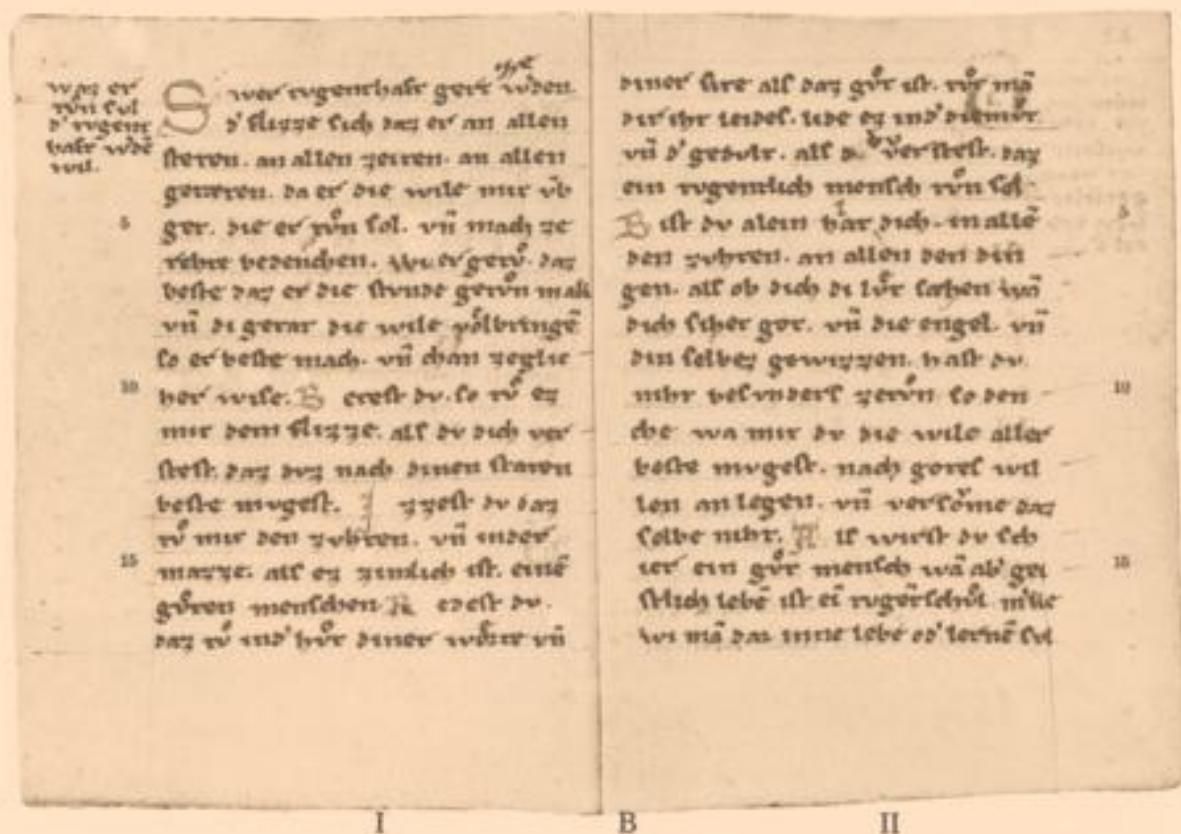 waz er
tvͦn sol
d' tugent
haft w'dē
wil.
S wer tvgenthaft gert w'den.
d' flizze sich daz er an allen
steten. an allen zeiten. an allen
geneten. da er die wile mit v̄b
get. die er tvͦn sol. vn̄ mach ze
rehte bedenchen. wi er getvͦ. daz
beste daz er die stvnde getvͦn mak
vn̄ di getat die wile volbringē
so er beste mach. vn̄ chan zeglic
her wise. B etest dv. so tvͦ ez
mit dem flizze. als dv dich ver
stest. daz dvz nach dinen staten
beste mvgest. I zzest dv daz
tvͦ mit den zvhten. vn̄ inder
mazze. als ez zimlich ist. einē
gvͦten menschen R edest dv.
daz tvͦ in d' hvͦt diner worte vn̄
diner site als daz gvͦt ist. tvͦt mā
dir iht leides. lide ez in d' diemvt
vn̄ d' gedvlt. als dv verstest. daz
ein tvgentlich mensch tvͦn sol
B ist dv alein hat dich. in allē
den zvhten. an allen den din
gen. als ob dich di lvͦt sæhen wā
dich siher got. vn̄ die engel. vn̄
din selbez gewizzen. hast dv.
niht besvnders zetvͦn so den
che wa mit dv die wile aller
beste mvgest. nach gotes wil
len an legen. vn̄ versovme daz
selbe niht. A ls wirst dv sch
ier ein gvͦt mensch wā ab' gei
stlich lebē ist ei̅ tvgentschvͦl
wi mā dar inne lebē od' lernē sol
5
10
15
5
10
15
I B II